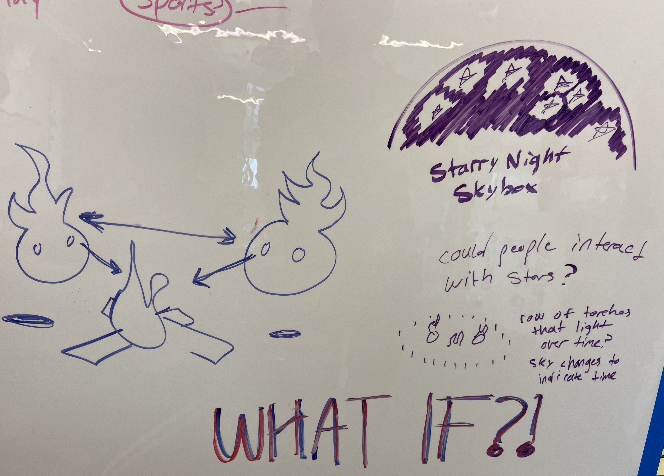 Sports?
Starry Night
Skybox
could people interact
with stars?
row of torches
that light
over time?
sky changes to
indicate time
WHAT IF?!